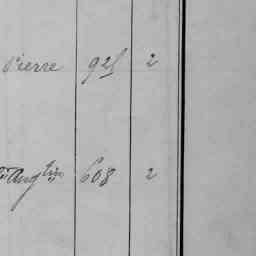 Pierre 925 2
St Augtin 608 2